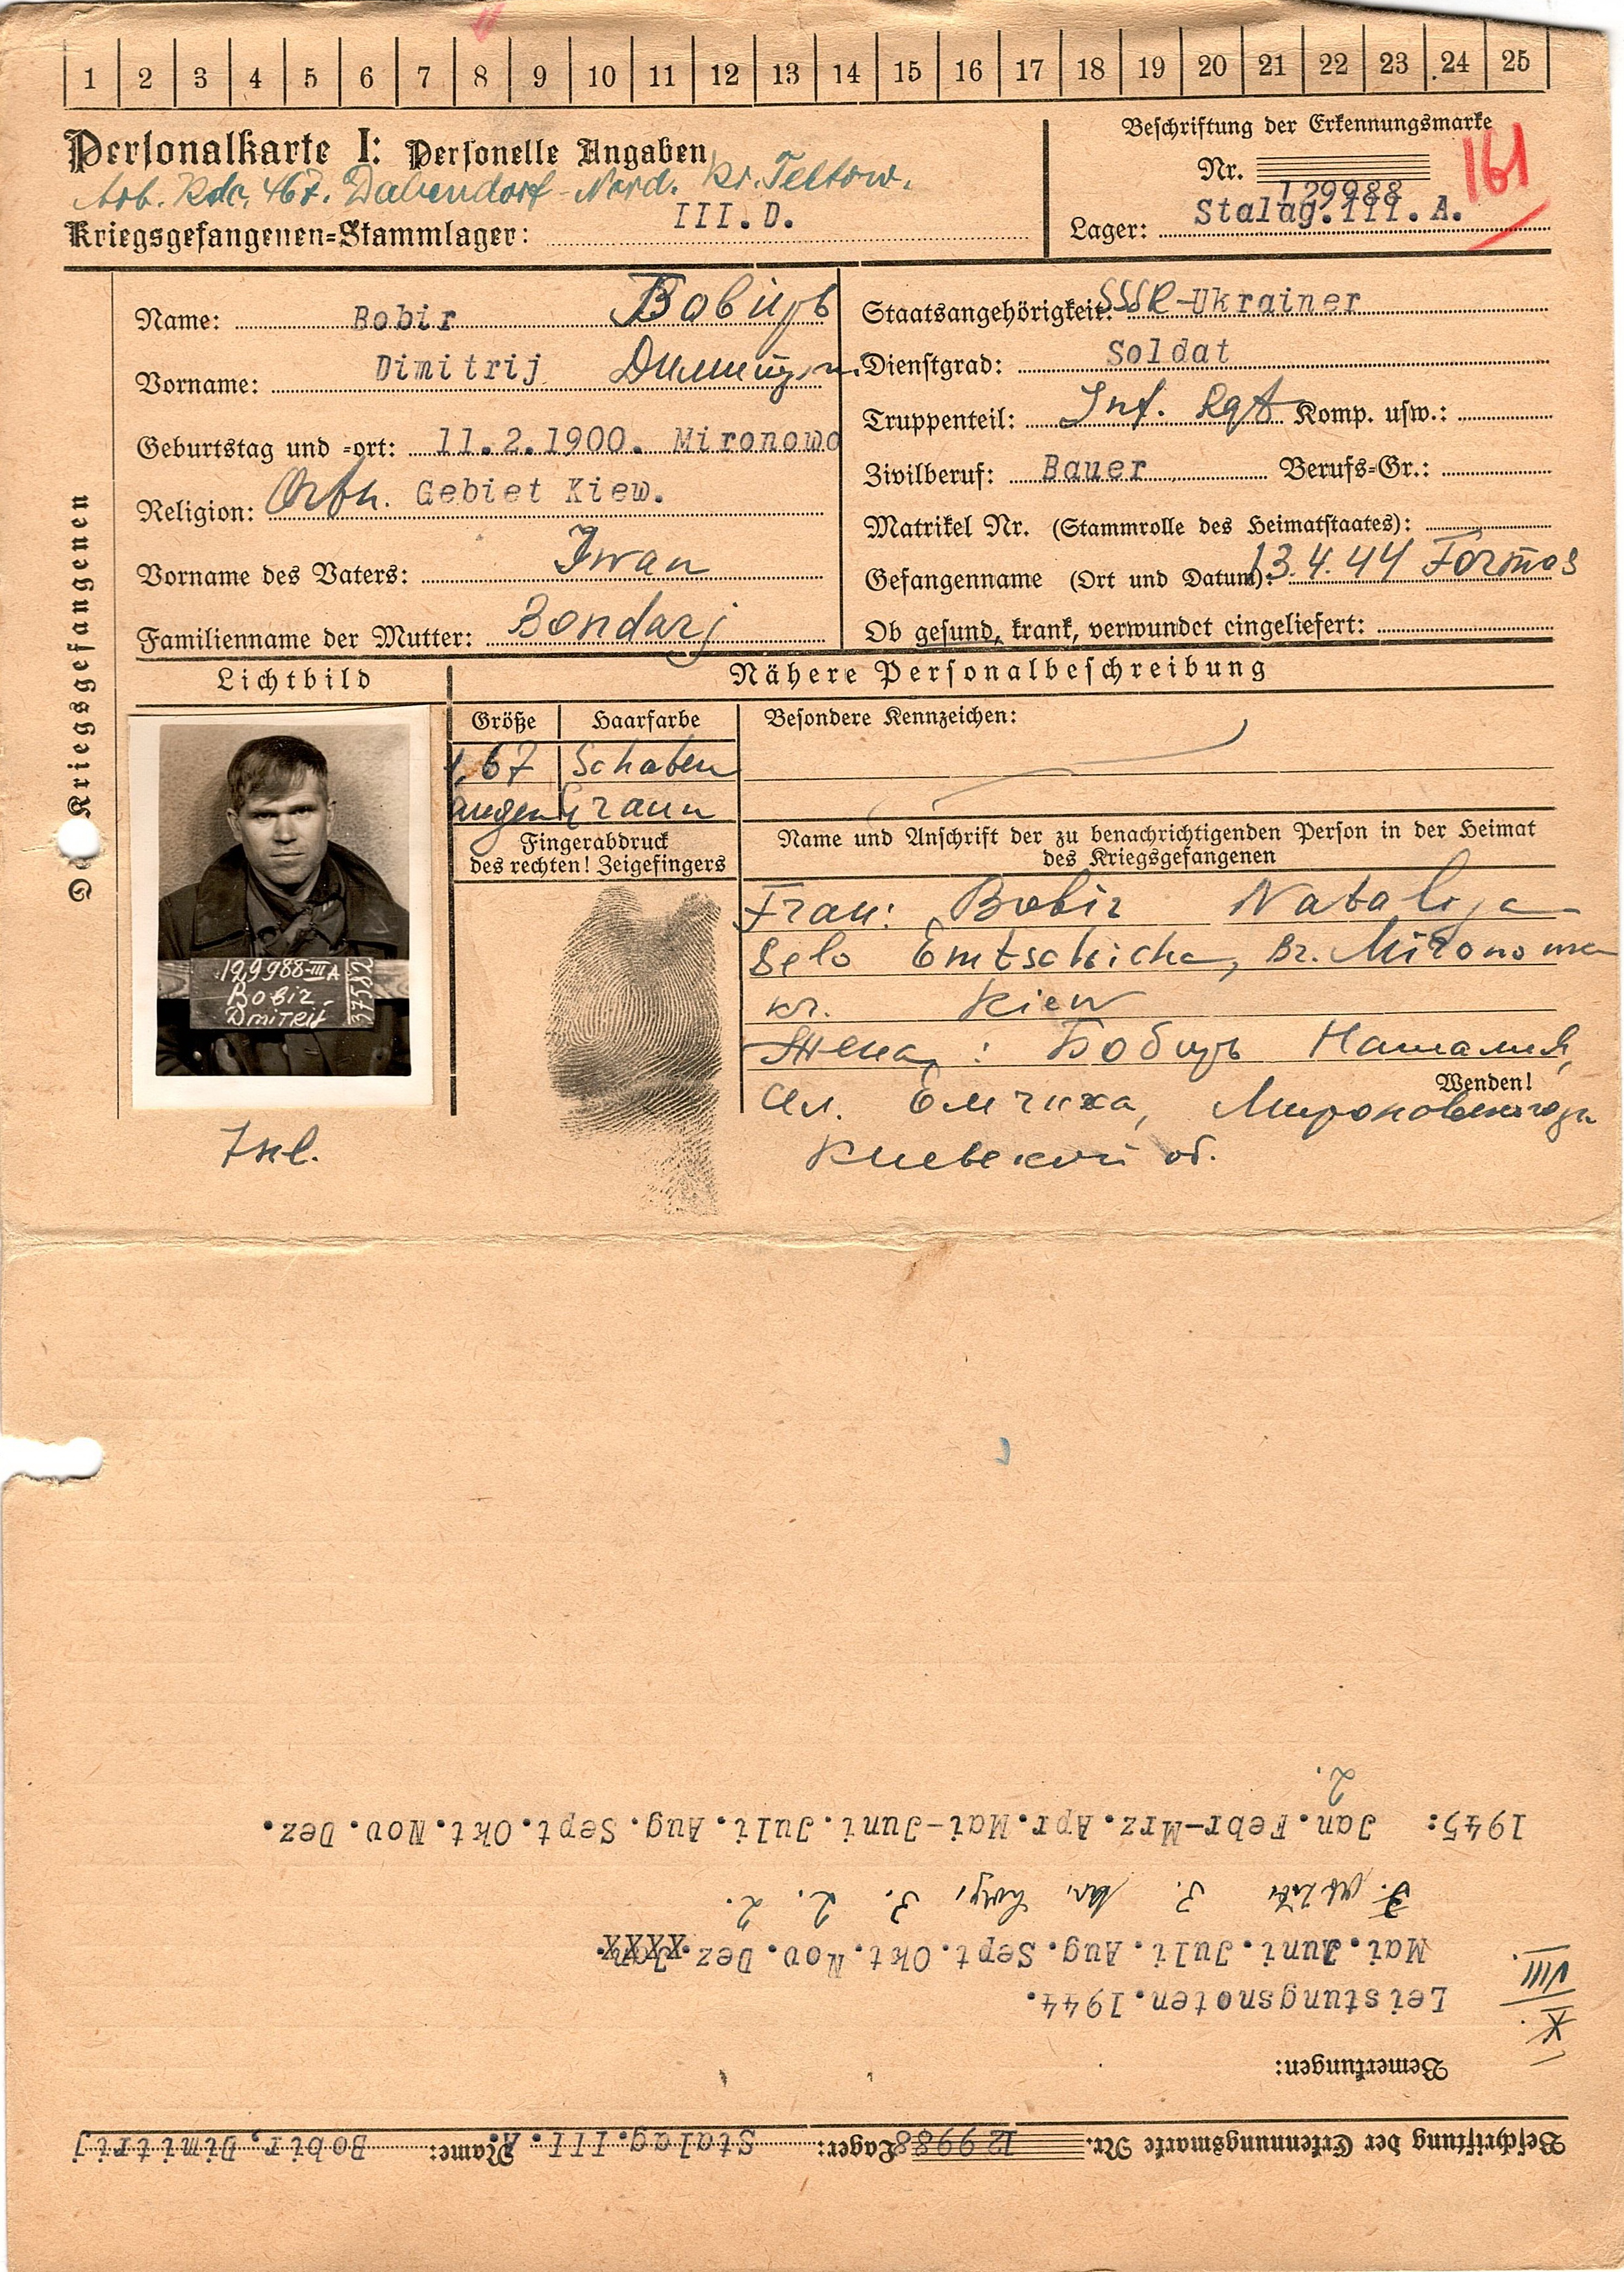 1 2 3 4 5 6 7 8 9 10 11 12 13 14 15 16 17 18 19 20 21 22 23 24 25
Personalkarte I: Personelle Angaben
Arb. Kdo. 467. Dabendorf-Nord. Kr. Teltow.
Kriegsgefangenen-Stammlager: III.D.
Beschriftung der Erkennungsmarke
Nr. 129988
161
Lager: Stalag.III.A.
Des Kriegsgefangenen
Name: Bobir Бобирь
Vorname: Dimitrij
Geburtstag und -ort: 11.2.1900. Mironowo
Religion: Orth. Gebiet Kiew.
Vorname des Vaters: Iwan
Familienname der Mutter: Bondarj
Staatsangehörigkeit: SSR-Ukrainer
Dienstgrad: Soldat
Truppenteil: Inf. Rgt Komp. usw.:
Zivilberuf: Bauer Berufs-Gr.:
Matrikel Nr. (Stammrolle des Heimatstaates):
Gefangenname (Ort und Datum): 13.4.44
Ob gesund, krank, verwundet eingeliefert:
Lichtbild
Nähere Personalbeschreibung
Größe Haarfarbe Besondere Kennzeichen:
1,67 Schaten
augen Graun
Fingerabdruck
des rechten! Zeigefingers
129988-III A
Bobir
Dmitrij
37582
Name und Anschrift der zu benachrichtigenden Person in der Heimat
des Kriegsgefangenen
Frau: Bobir Natalija
Selo Emtschicha, Br.
kr. Kiew
Жена: Бобирь Наталия,
Wenden!
Емчиха,
Киевской об.
Beschriftung der Erkennungsmarke Nr. 129988 Lager: Stalag.III.A. Name: Bobir, Dimitrij
Bemerkungen:
X.
VIII.
Leistungsnoten.1944.
Mai.Juni.Juli.Aug.Sept.Okt.Nov.Dez.
3. 3. 2. 2.
1945: Jan.Febr-Mrz.Apr.Mai-Juni.Juli.Aug.Sept.Okt.Nov.Dez.
2.